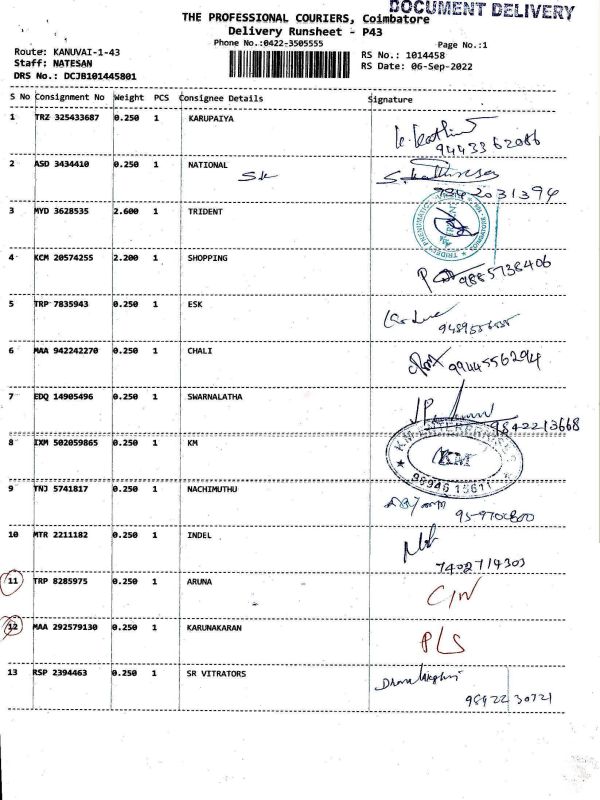 DOCUMENT DELIVERY
THE PROFESSIONAL COURIERS, Coimbatore
Delivery Runsheet - P43
Phone No.:0422-3505555
Page No.:1
Route: KANUVAI-1-43
RS No.: 1014458
Staff: NATESAN
RS Date: 06-Sep-2022
DRS No.: DCJB101445801
S No Consignment No Weight PCS Consignee Details Signature
1 TRZ 325433687 0.250 1 KARUPAIYA
9443362086
2 ASD 3434410 0.250 1 NATIONAL
3 MYD 3628535 2.600 1 TRIDENT
4 KCM 20574255 2.200 1 SHOPPING
9885738406
5 TRP 7835943 0.250 1 ESK
6 MAA 942242270 0.250 1 CHALI
7 EDQ 14905496 0.250 1 SWARNALATHA
9842213668
8 IXM 502059865 0.250 1 KM
KM ENTERPRISES
KM
9 TNJ 5741817 0.250 1 NACHIMUTHU
10 MTR 2211182 0.250 1 INDEL
7402714303
11 TRP 8285975 0.250 1 ARUNA
C/N
12 MAA 292579130 0.250 1 KARUNAKARAN
P/S
13 RSP 2394463 0.250 1 SR VITRATORS
9892230721